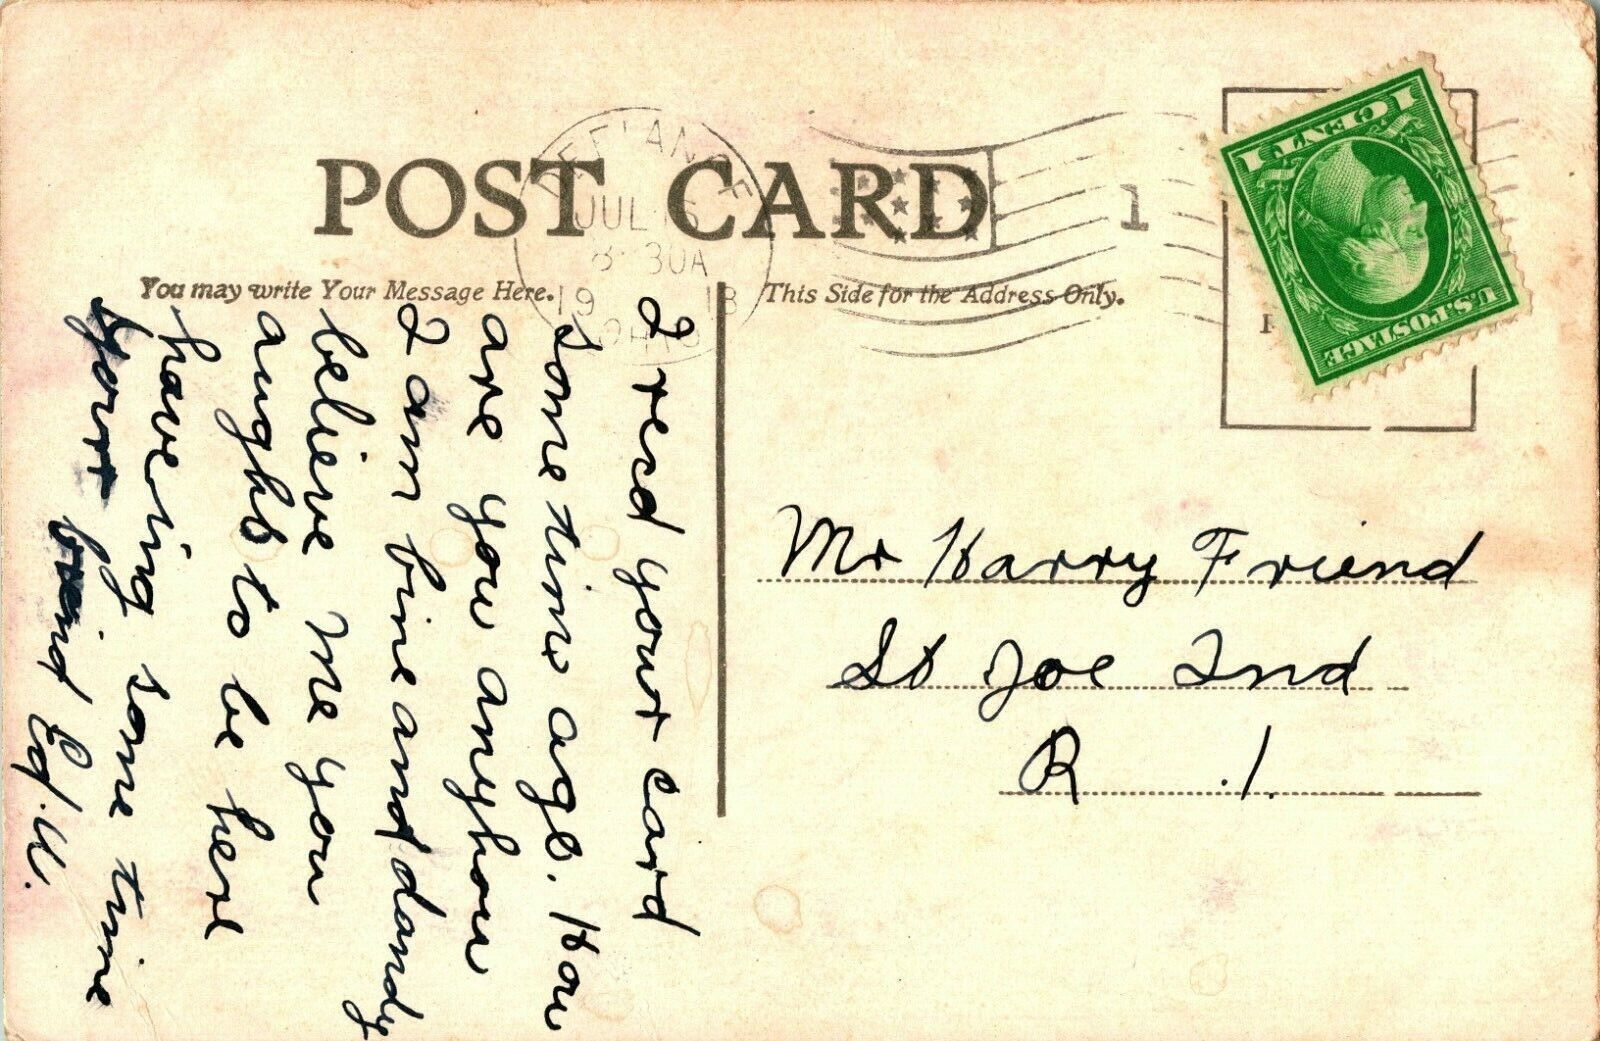 POST CARD
DEFIANCE
JUL 15
8 30A
19 13
OHIO
1
You may write Your Message Here.
This Side for the Address Only.
1 CENT 1
U.S. POSTAGE
I recd your card
some time ago. How
are you anyhow
I am fine and dandy
believe me you
aught to be here
haveing some time
your Ed. W.
Mr Harry Friend
St Joe Ind
R. 1.